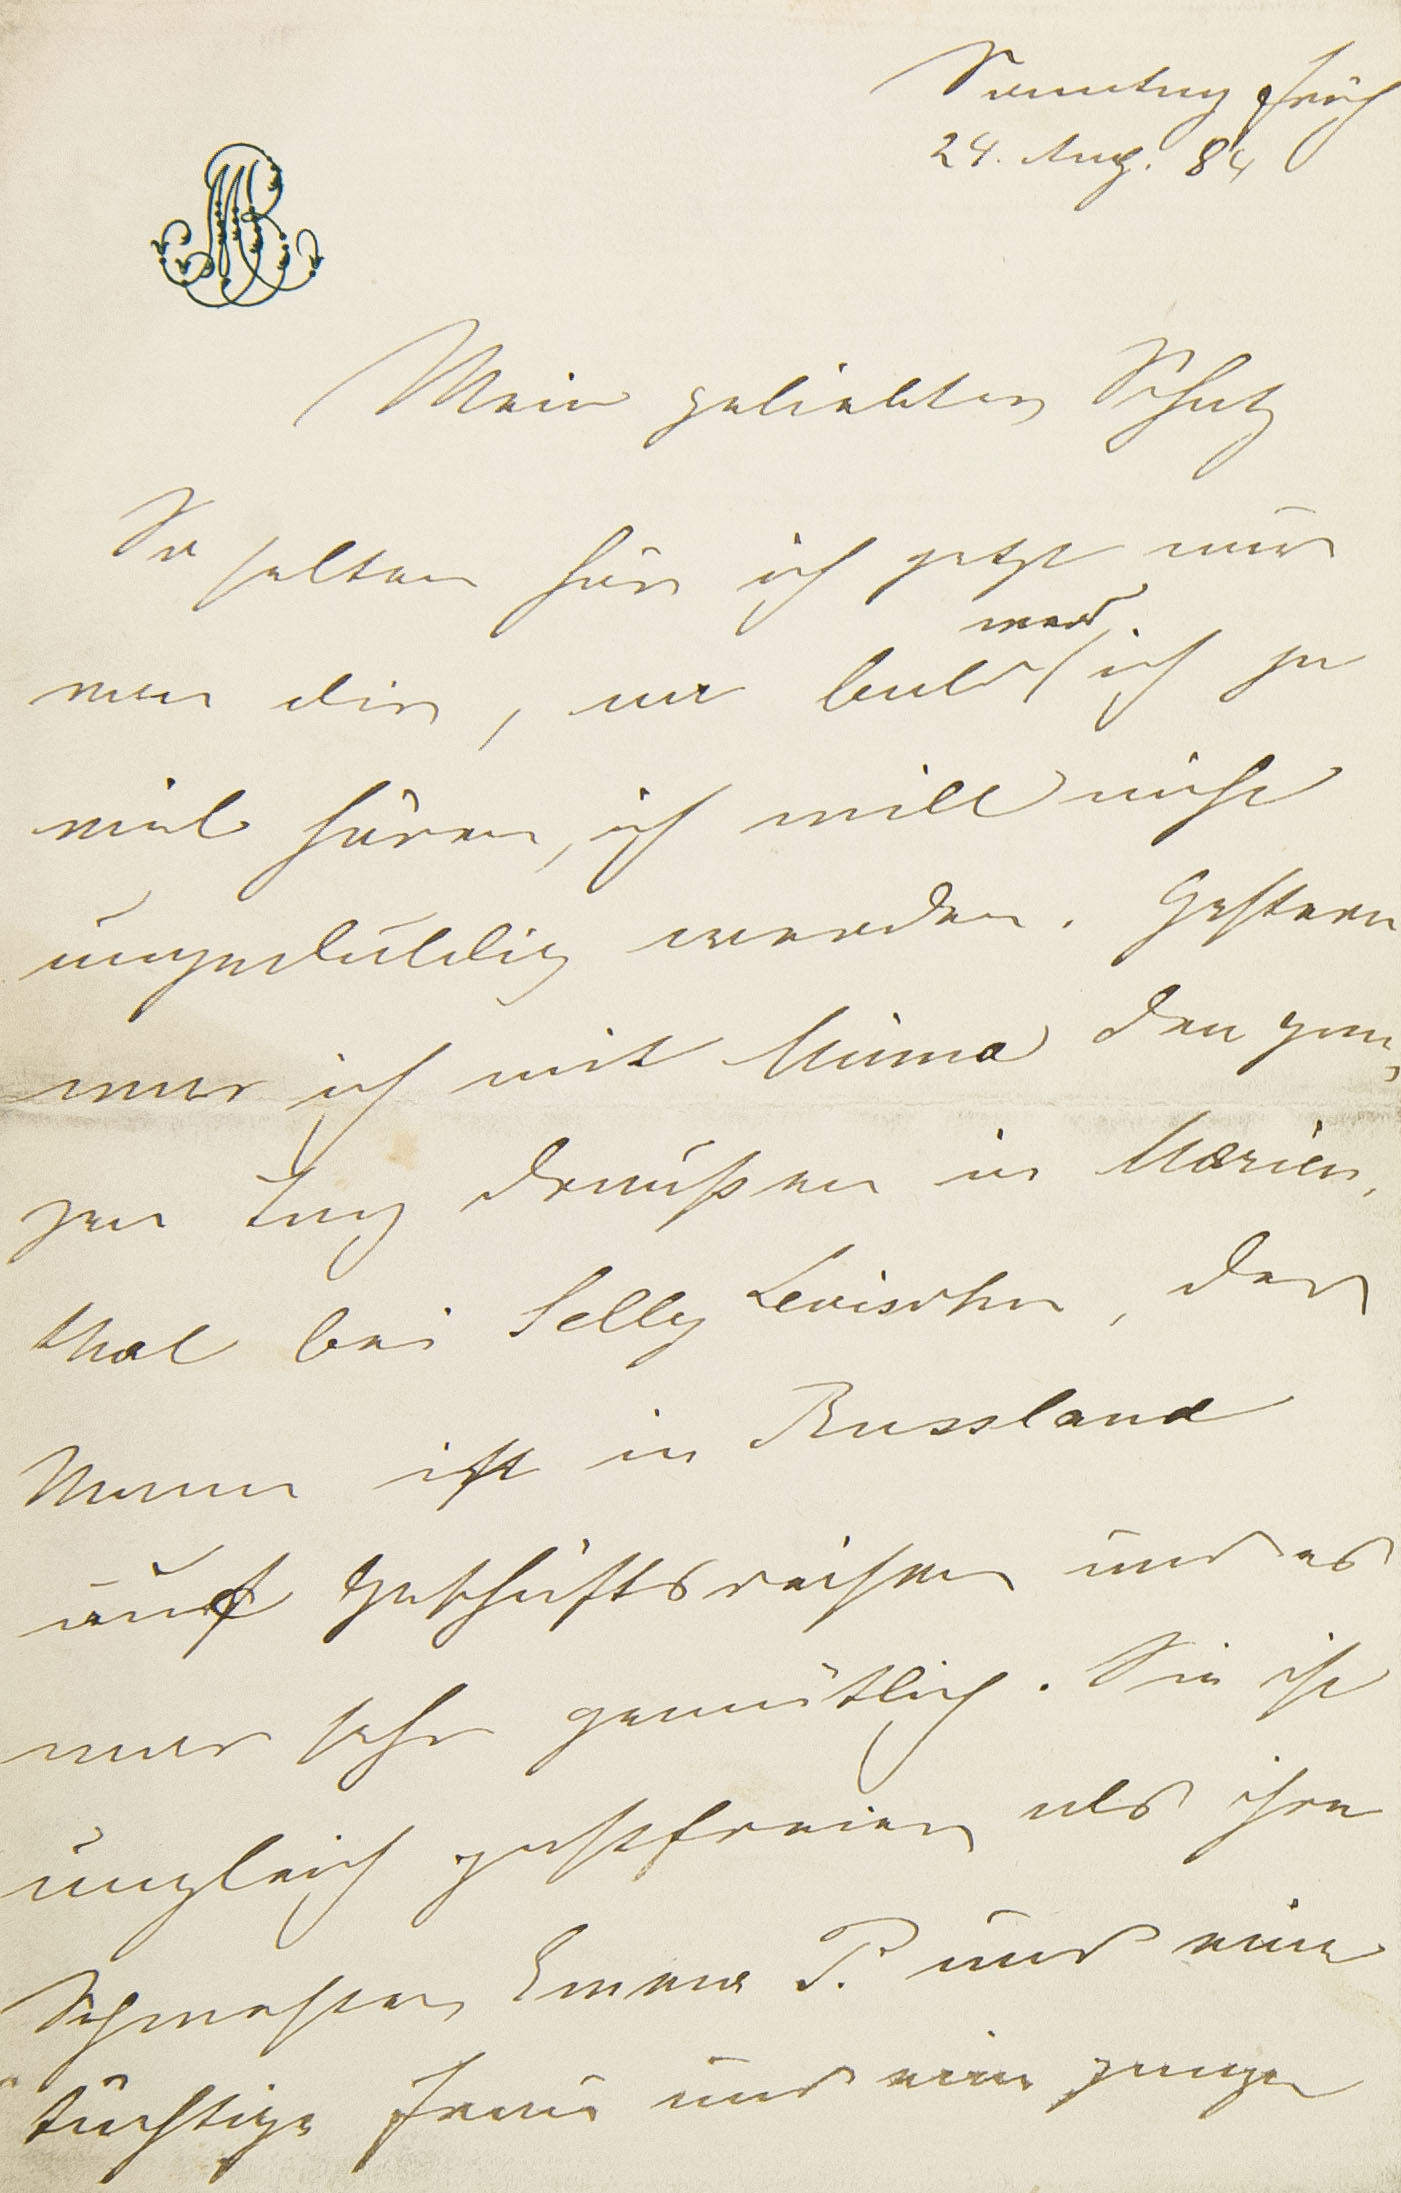 MB
Sonntag früh
24. Aug. 84
Mein geliebter Schatz
So selten hör ich jetzt nur
von dir, na bald werd ich ja
viel hören, ich will nicht
ungeduldig werden. Gestern
war ich mit Mama den gan-
zen Tag draußen in Marien-
thal bei Selly Levisohn, der
Mann ist in Russland
auf Geschäftsreisen und es
war sehr gemütlich. Sie ist
ungleich gastfreier als ihre
Schwester Emma P. und eine
tüchtige Frau und eine